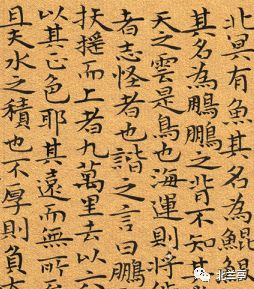 北冥有魚其名為鯤鯤
其名為鵬鵬之背不知其
天之雲是鳥也海運則將
者志怪者也諧之言曰鵬
扶搖而上者九萬里去以六
以其正色耶其遠而無所
且夫水之積也不厚則負大
北兰亭